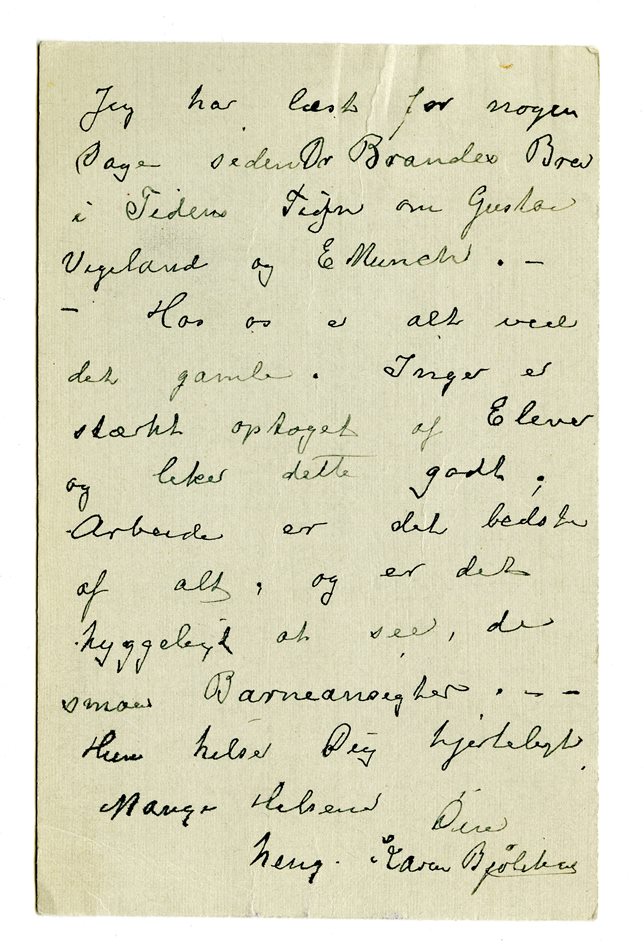 Jeg har læst for nogen
Dage siden Dr Brandes Brev
i Tidens Tegn om Gustav
Vigeland og E Munch. –
– Hos os er alt ved
det gamle. Inger er
stærkt optaget af Elever
og liker dette godt;
Arbeide er det bedste
af alt, og er det
hyggeligt at see, de
smaa Barneansigter. – –
Hun hilser Dig hjerteligt
Mange Hilsener
heng. Karen Bjølstad